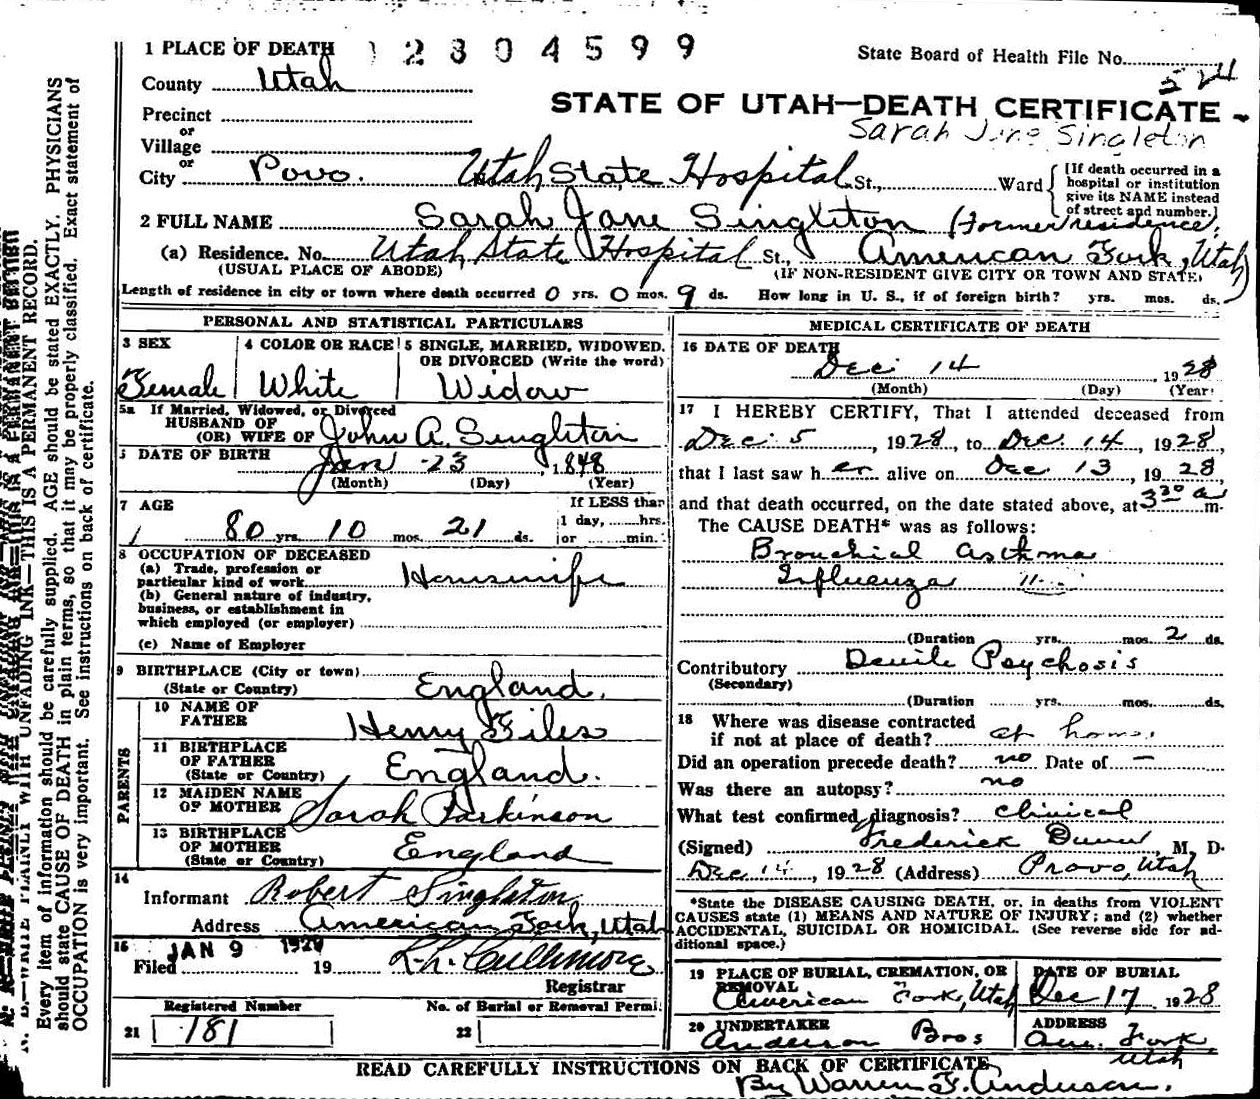 1 PLACE OF DEATH 12804599
State Board of Health File No. 524
County Utah
STATE OF UTAH—DEATH CERTIFICATE
Precinct
Sarah Jane Singleton
or
Village
or
City Povo. Utah State Hospital St., Ward
[If death occurred in a hospital or institution give its NAME instead of street and number.]
2 FULL NAME Sarah Jane Singleton (Former residence,
(a) Residence. No. Utah State Hospital St., American Fork, Utah)
(USUAL PLACE OF ABODE) (IF NON-RESIDENT GIVE CITY OR TOWN AND STATE)
Length of residence in city or town where death occurred 0 yrs. 0 mos. 9 ds. How long in U. S., if of foreign birth? yrs. mos. ds.
PERSONAL AND STATISTICAL PARTICULARS
3 SEX 4 COLOR OR RACE 5 SINGLE, MARRIED, WIDOWED, OR DIVORCED (Write the word)
Female White Widow
5a If Married, Widowed, or Divorced
HUSBAND OF
(OR) WIFE OF John A. Singleton
DATE OF BIRTH Jan 23, 1848
(Month) (Day) (Year)
7 AGE If LESS than
80 yrs. 10 mos. 21 ds. 1 day, hrs.
or min.
8 OCCUPATION OF DECEASED
(a) Trade, profession or
particular kind of work Housewife
(b) General nature of industry,
business, or establishment in
which employed (or employer)
(c) Name of Employer
9 BIRTHPLACE (City or town)
(State or Country) England.
PARENTS
10 NAME OF
FATHER Henry Giles
11 BIRTHPLACE
OF FATHER
(State or Country) England.
12 MAIDEN NAME
OF MOTHER Sarah Parkinson
13 BIRTHPLACE
OF MOTHER
(State or Country) England
14
Informant Robert Singleton
Address American Fork, Utah
15 JAN 9 1929
Filed 19 L. L. Cullimore
Registrar
Registered Number No. of Burial or Removal Permit
21 181 22
MEDICAL CERTIFICATE OF DEATH
16 DATE OF DEATH
Dec 14, 1928
(Month) (Day) (Year)
17 I HEREBY CERTIFY, That I attended deceased from
Dec 5, 1928, to Dec 14, 1928,
that I last saw her alive on Dec 13, 1928,
and that death occurred, on the date stated above, at 3:30 a m.
The CAUSE DEATH* was as follows:
Bronchial asthma
Influenza "
(Duration yrs. mos. 2 ds.
Contributory Senile Psychosis
(Secondary)
(Duration yrs. mos. ds.
18 Where was disease contracted
if not at place of death? at home.
Did an operation precede death? no Date of —
Was there an autopsy? no
What test confirmed diagnosis? clinical
(Signed) Frederick Dunn, M. D.
Dec 14, 1928 (Address) Provo, Utah
*State the DISEASE CAUSING DEATH, or, in deaths from VIOLENT
CAUSES state (1) MEANS AND NATURE OF INJURY; and (2) whether
ACCIDENTAL, SUICIDAL OR HOMICIDAL. (See reverse side for ad-
ditional space.)
19 PLACE OF BURIAL, CREMATION, OR REMOVAL DATE OF BURIAL
American Fork, Utah Dec 17 1928
20 UNDERTAKER ADDRESS
Anderson Bros Am. Fork
Utah
READ CAREFULLY INSTRUCTIONS ON BACK OF CERTIFICATE
By Warren F. Anderson.
N. B.—WRITE PLAINLY WITH UNFADING INK—THIS IS A PERMANENT RECORD.
Every item of information should be carefully supplied. AGE should be stated EXACTLY. PHYSICIANS
should state CAUSE OF DEATH in plain terms, so that it may be properly classified. Exact statement of
OCCUPATION is very important. See instructions on back of certificate.